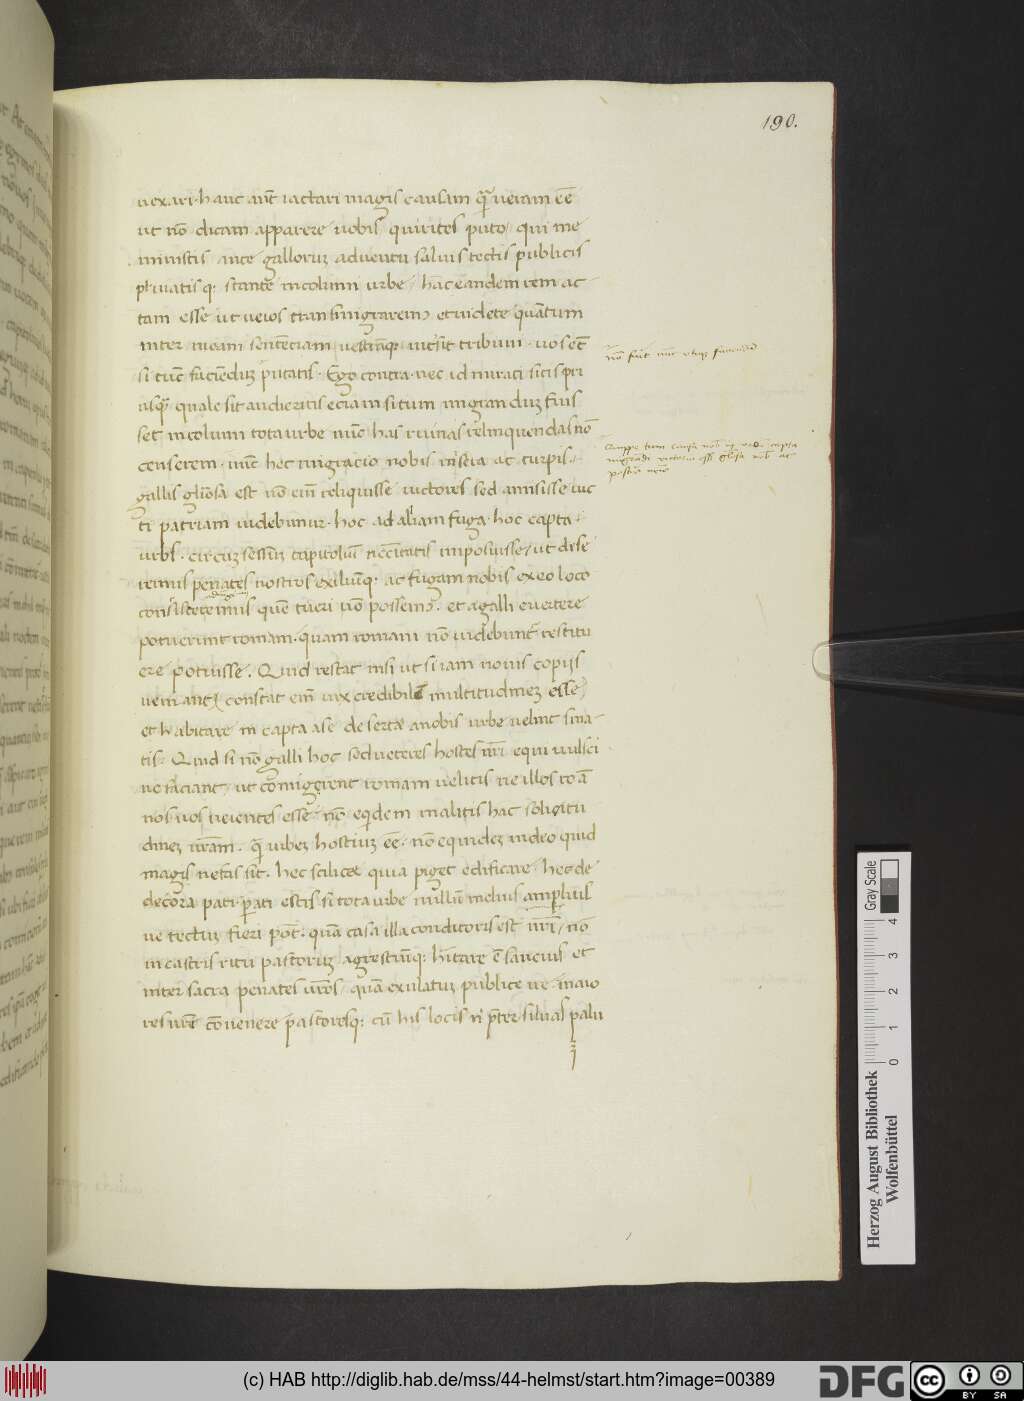 190.
uexari. hanc aut̄ iactari magis causam q̄ ueram eē
ut nō dicam apparere uobis quirites puto / qui me
ministis ante gallorum aduentu saluis tectis publicis
priuatisq; stante incolumi urbe / hac eandem rem ac
tam esse ut ueios transmigraremꝰ et uidete quātum
inter meam sententiam uestrāq; intsit tribuni. uos et̄
si tūc faciendū putatis. Ego contra. nec id mirati sitis pri
usq̄ quale sit audieritis etiam si tum migrandum fuis
set incolumi tota urbe nūc has ruinas relinquendas nō
censerem. nūc hec migracio nobis misera ac turpis.
gallis gliosa est nō em̄ reliquisse uictores sed amisisse uic
ti patriam uidebimur. hoc ad aliam fuga. hoc capta
urbs. circumsessum capitoliū necitatis imposuisse / ut dese
remus penates nostros exiliūq; ac fugam nobis ex eo loco
consisceremus quē tueri nō possemꝰ. et a galli euertere
potuerunt romam. quam romani nō uidebunt̄ restitu
ere potuisse. Quid restat nisi ut si iam nouis copijs
ueniant constat em̄ uix credibilē multitudinem esse /
et habitare in capta a se deserta a nobis urbe uelint sina
tis? Quid si nō galli hoc sed ueteres hostes ūri equi uulsci
ue faciant / ut comigrent romam uelitis ne illos roā
nos uos ueientes esse. nō eqidem malitis hac solicitu
dinem ūram. q̄ urbem hostium eē. nō equidem uideo quid
magis nefas sit. hec scilicet quia piget edificare. hec de
decora pati pati estis si tota urbe nullū melius ampliusl
ue tectum fieri pot̄. quā casa illa conditoris est ūri / nō
in castris ritu pastorum agrestiūq; hitare ē satieuis et
inter sacra penates ūros / quā exulatum publice ire. maio
res ūre conuenere pastoresq; cū his locis n̄ pter siluas palu
nō fuit nūc utiq; faciendū
Quippe tum causa nob̄ migrandi uictoria ēss gliosa nob̄ ac
posteris nris
Gray Scale
4
3
2
1
0
Herzog August Bibliothek
Wolfenbüttel
(c) HAB http://diglib.hab.de/mss/44-helmst/start.htm?image=00389
DFG
cc
BY SA